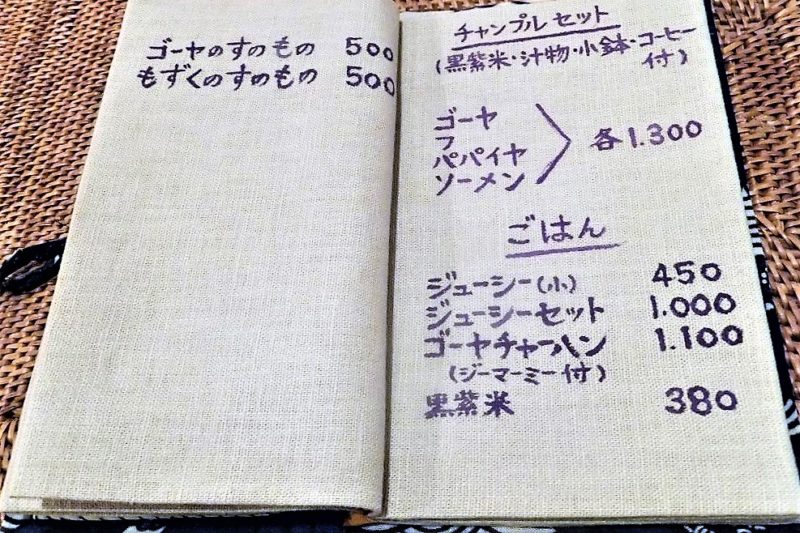 ゴーヤのすのもの 500
もずくのすのもの 500
チャンプルセット
(黒紫米・汁物・小鉢・コーヒー付)
ゴーヤ
フ
パパイヤ
ソーメン
各1.300
ごはん
ジューシー(小) 450
ジューシーセット 1.000
ゴーヤチャーハン 1.100
(ジーマーミー付)
黒紫米 380